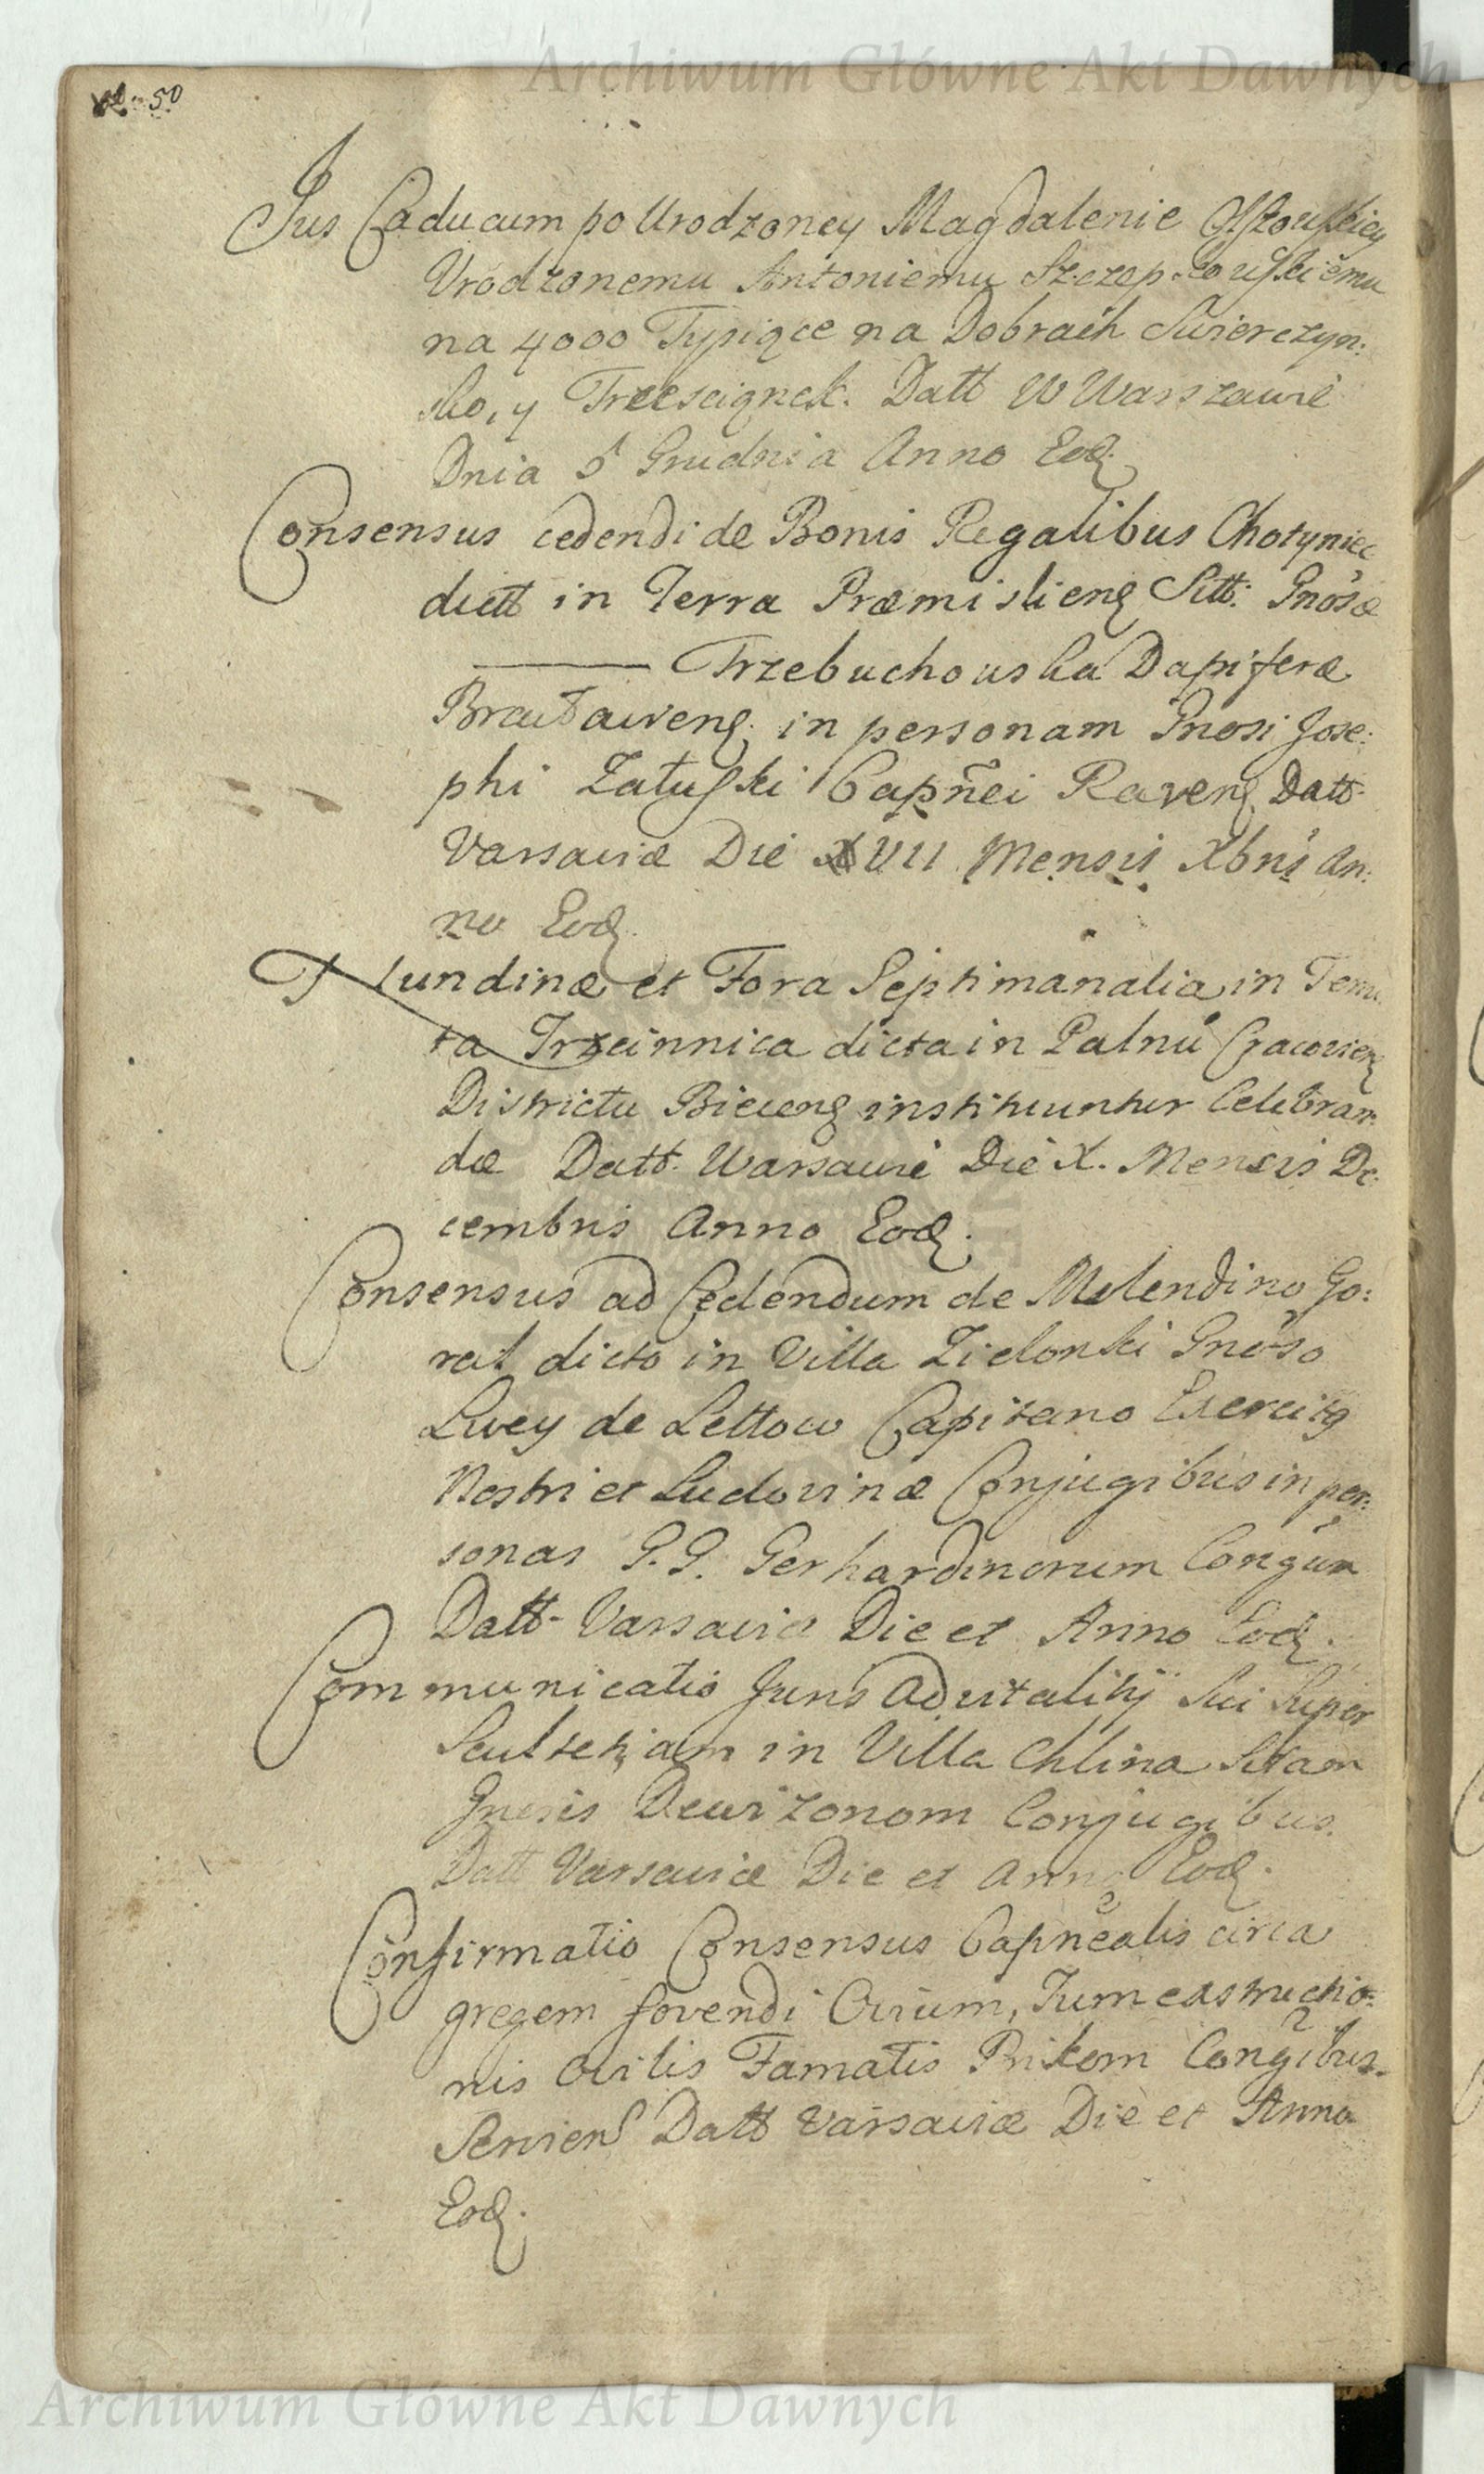 Archiwum Główne Akt Dawnych
50
Jus Caducum po Urodzoney Magdalenie
Urodzonemu Antoniemu Szczepkouskiemu
na 4000 Tysiące na Dobrach Swierczyn:
sko, y Trzesciąnek. Datt W Warszawie
Dnia 5 Grudnia Anno Eod.
Consensus cedendi de Bonis Regalibus Chotyniec
dictt in Terra Præmisliens Sitt: Gnosæ
——— Trzebuchouska Dapiferæ
Brastawens. in personam Gnosi Jose:
phi Załuski Capnei Ravens Datt
Varsaviæ Die XVII Mensis Xbris An:
no Eod.
Nundinæ et Fora Septimanalia in Tenu
ta Trzcinnica dicta in Palnu Cracovien
Districtu Biecens instituuntur Celebran:
dæ Datt. Warsavie Die X. Mensis De:
cembris Anno Eod.
Consensus ad Cedendum de Molendino Go:
ral dicto in Villa Zielonki Gnoso
de Lettow Capitano Exercitq
Nostri et Ludovinæ Conjugibus in per:
sonas G.G. Gerhardinorum Congum
Datt Varsaviæ Die et Anno Eod.
Communicatio Juris Advitalitij Sui Super
Scultetiam in Villa Chlina Sitam
Gnosis Dewizonom Conjugibus.
Datt Varsaviæ Die et Anno Eod.
Confirmatio Consensus Capnealis circa
gregem fovendi Ovium, Tum exstructio:
nis Ovilis Famatis Prikom Congibus
Servien Datt Varsaviæ Die et Anno
Eod.
Archiwum Główne Akt Dawnych